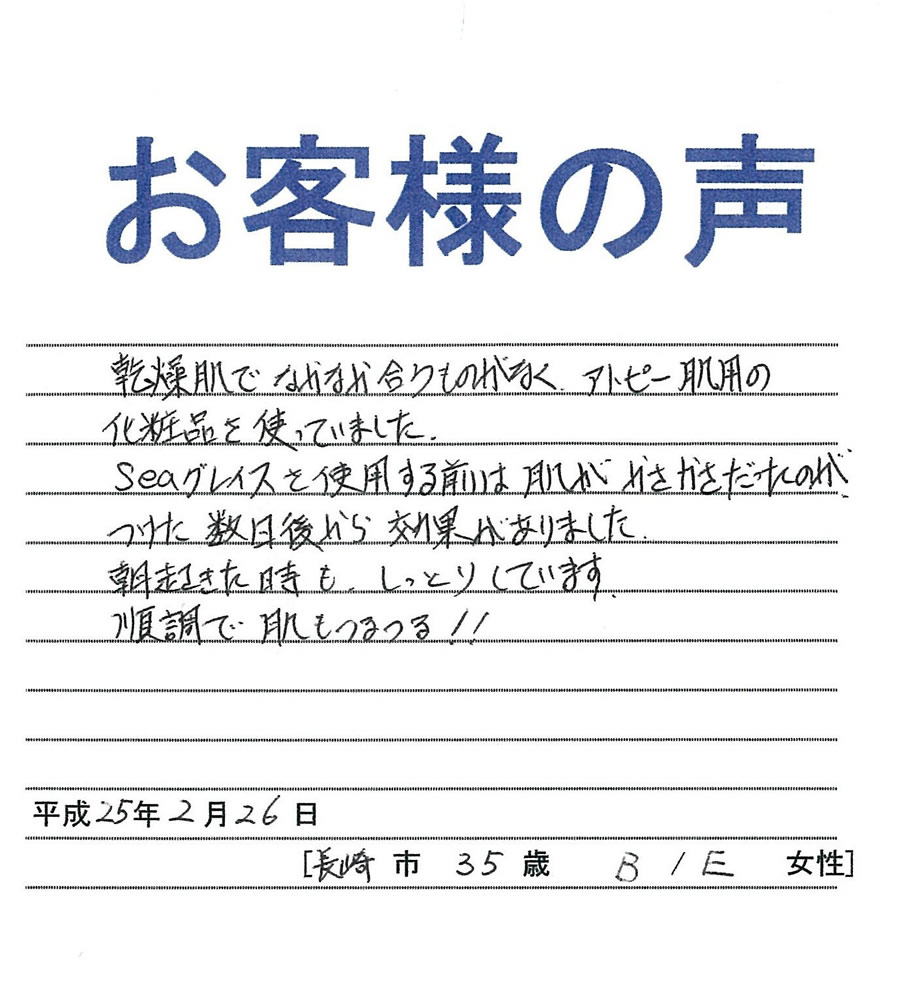 お客様の声
乾燥肌でなかなか合うものがなく、アトピー肌用の
化粧品を使っていました。
Seaグレイスを使用する前は肌がかさかさだったのが、
つけた数日後から効果がありました。
朝起きた時も、しっとりしています。
順調で肌もつるつる!!
平成25年2月26日
[長崎市 35歳 B / E 女性]